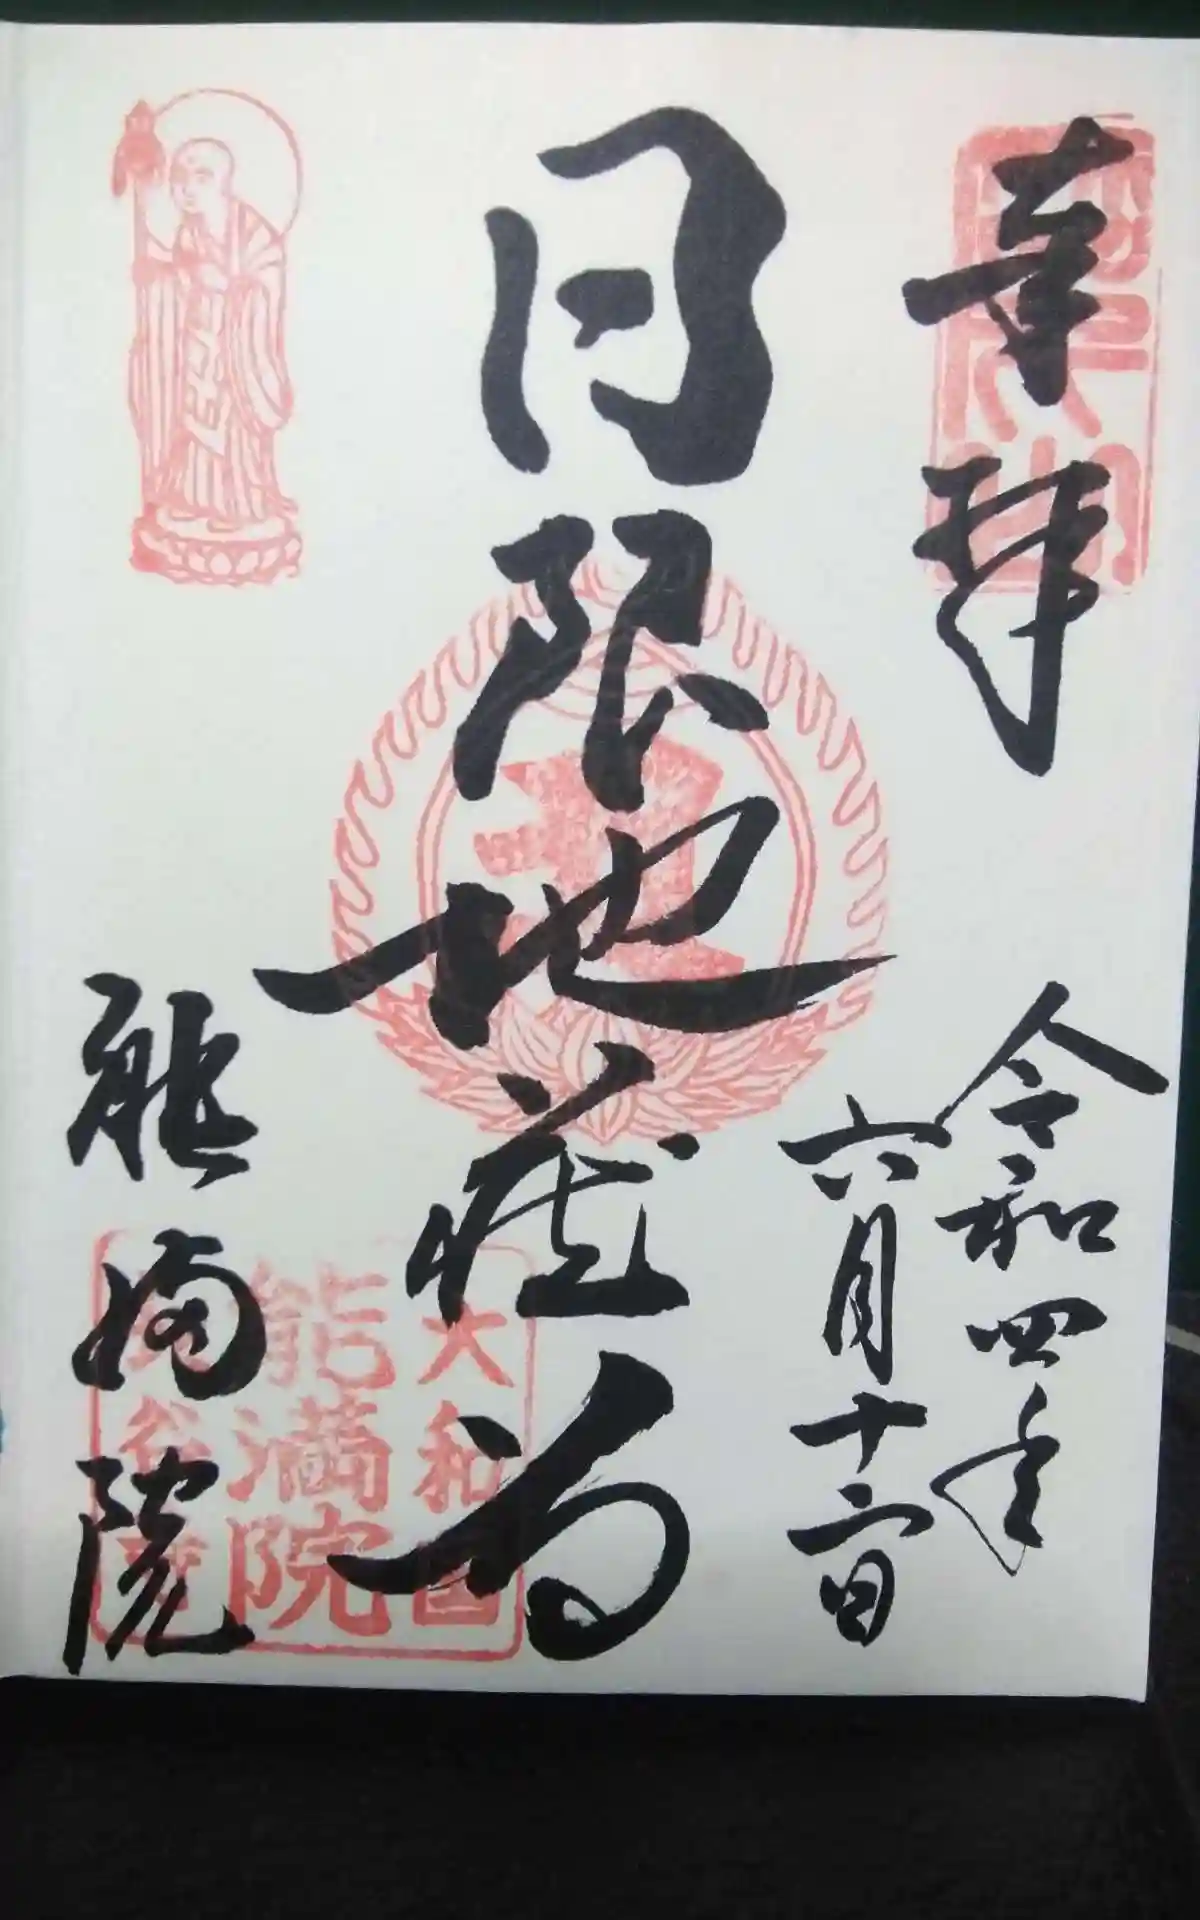 奉拝
令和四年
六月十二日
日限地蔵尊
能満院
大和国
能満院
長谷寺